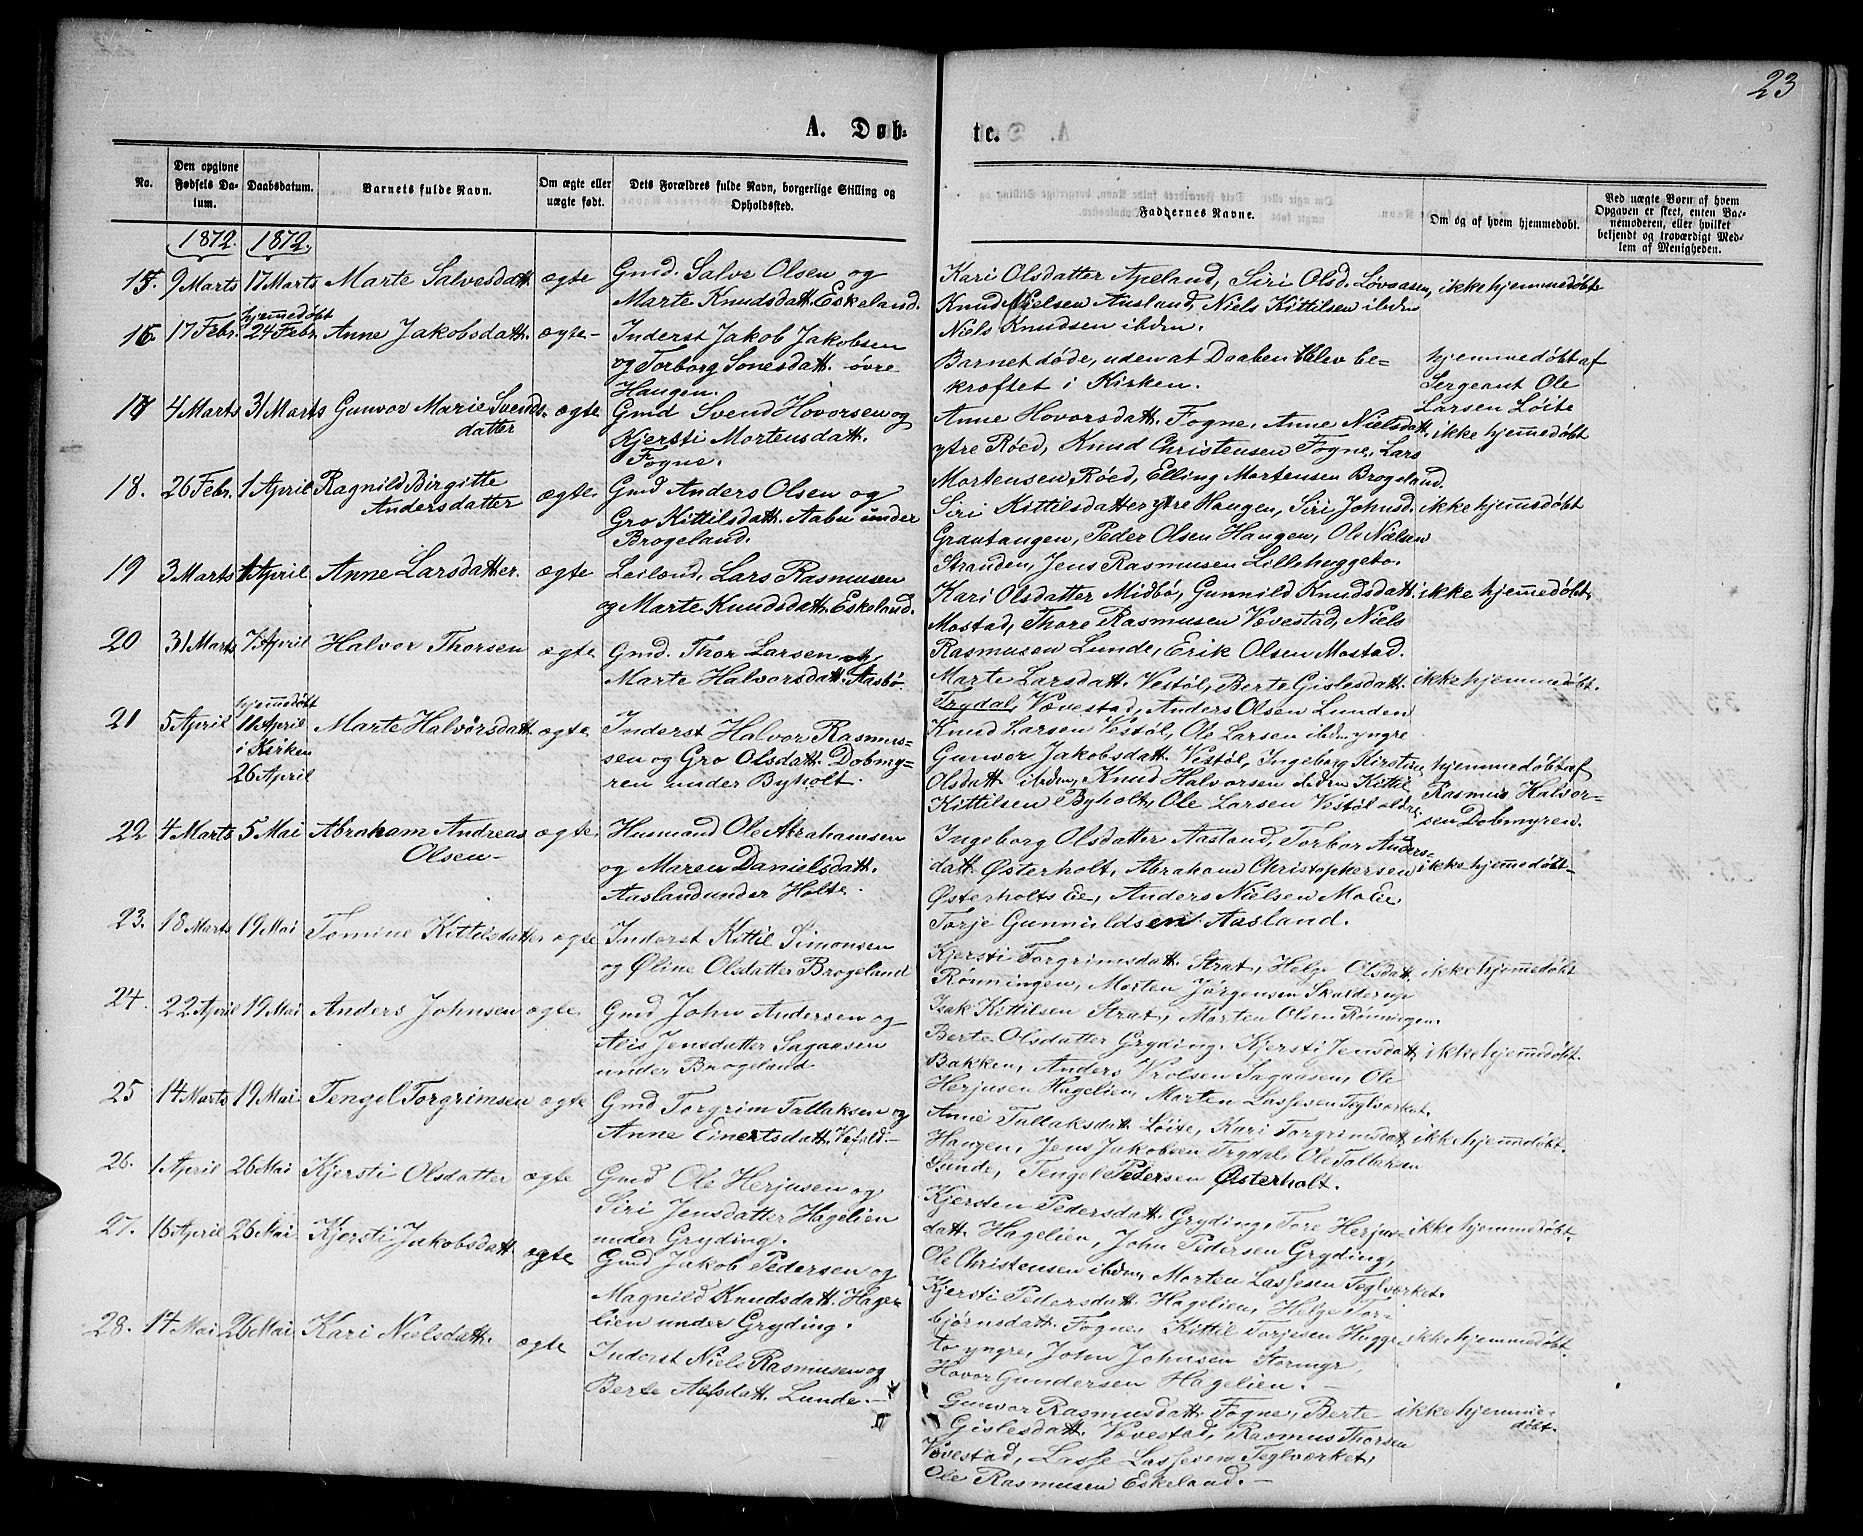 23
A. Døb-
te.
No.
Den opgivne Fødsels Datum.
Daabsdatum.
Barnets fulde Navn.
Om ægte eller uægte født.
Dets Forældres fulde Navn, borgerlige Stilling og Opholdssted.
Faddernes Navne.
Om og af hvem hjemmedøbt.
Ved uægte Børn af hvem Opgaven er skeet, enten Barnemoderen, eller hvilket bekjendt og troværdigt Medlem af Menigheden.
1872. 1872.
15. 9 Marts 17 Marts Marte Salvesdatt. ægte
Gmd. Salve Olsen og
Marte Knudsdatt. Eskeland.
Kari Olsdatter Apeland, Siri Olsd. Løvaasen,
Knud Nielsen Aasland, Niels Kittilsen ibdm
Niels Knudsen ibdm.
ikke hjemmedøbt
16 17 Febr. hjemmedøbt 24 Febr. Anne Jakobsdatt. ægte-
Inderst Jakob Jakobsen
og Torborg Tonesdatt. øvre
Haugen.
Barnet døde, uden at Daaben blev be-
kræftet i Kirken.
hjemmedøbt af
Sergeant Ole
Larsen Løite
17 4 Marts 31 Marts Gunvor Marie Svends-
datter ægte
Gmd Svend Hovorsen og
Kjersti Mortensdatt.
Fogne.
Anne Hovorsdatt. Fogne, Anne Nielsdatt.
ytre Røed, Knud Christensen Fogne, Lars
Mortensen Røed, Elling Mortensen Brogeland.
ikke hjemedøbt
18. 26 Febr. 1 April Ragnild Birgitte
Andersdatter ægte.
Gmd Anders Olsen og
Gro Kittilsdatt. Aabu under
Brogeland.
Siri Kittilsdatter ytre Haugen, Siri Johnsd.
Grautangen, Peder Olsen Haugen, Ole Nielsen
Stranden, Jens Rasmussen Lillehuggeto.
ikke hjemmedøbt
19 3 Marts 1 April Anne Larsdatter. ægte
Leilænd. Lars Rasmusen
og Marte Knudsdatt. Eskeland.
Kari Olsdatter Midbø, Gunnild Knudsdatt.
Mostad, Thore Rasmusen Vovestad, Niels
Rasmusen Lunde, Erik Olsen Mostad.
ikke hjemmedøbt.
20 31 Marts 7 April Halvor Thorsen ægte
Gmd. Thor Larsen og
Marte Halvorsdatt. Aasbø.
Marte Larsdatt. Vestøl, Berte Gislesdatt.
Vovestad, Anders Olsen Lunden
Trydal,
Knud Larsen Vestøl, Ole Larsen ibdm yngre
ikke hjemmedøbt.
21 5 April hjemmedøbt
11 April
i Kirken
26 April
Marte Halvorsdatt. ægte
Inderst Halvor Rasmus-
sen og Gro Olsdatt. Dobmy-
ren under Byholt.
Gunvor Jakobsdatt. Vestøl, Ingeborg Kirstine
Olsdatt. ibdm, Knud Halvorsen ibdm Kittil
Kittilsen Byholt, Ole Larsen Vestøl ældre
hjemmedøbt af
Rasmus Halvor-
sen Dobmyren.
22 4 Marts 5 Mai Abraham Andreas
Olsen- ægte.
Husmand Ole Abrahamsen
og Maren Danielsdatt.
Aasland under Holte.
Ingeborg Olsdatter Aasland, Torbor Anders-
datt. Østerholt, Abraham Christophersen
Østerholts Eie, Anders Nielsen Mo Eie
Torje Gunnuldsen Aasland.
ikke hjemmedøbt-
23. 18 Marts 19 Mai Tomine Kittilsdatter ægte
Inderst Kittil Simonsen
og Øline Olsdatter Brogeland
Kjersti Torgrimsdatt. Strat, Helge Olsdatt.
Rønningen, Morten Jørgensen Skarderup
Isak Kittilsen Strat, Morten Olsen Rønningen.
ikke hjemmedøbt
24. 22 April 19 Mai Anders Johnsen ægte.
Gmd John Andersen og
Alis Jensdatter Sagaasen
under Brogeland
Berte Olsdatter Gryding. Kjersti Jensdatt.
Bakken, Anders Vrolsen Sagaasen, Ole
Herjusen Hagelien, Morten Lassesen Teglværket.
ikke hjemmedøbt.
25 14 Marts 19 Mai Tengel Torgrimsen ægte
Gmd Torgrim Tallaksen og
Anne Einertsdatt. Vefald.-
Anne Tallaksdatt. Løite, Kari Torgrimsdatt.
Haugen, Jens Jakobsen Trydal, Ole Tallaksen
Lunde, Tengel Pedersen Østerholt.
ikke hjemmedøbt.
26. 1 April 26 Mai Kjersti Olsdatter ægte
Gmd Ole Herjusen og
Siri Jensdatter Hagelien
under Gryding.
Kjersten Pedersdatt. Gryding, Tore Herjus-
datt. Hagelien, John Pedersen Gryding,
Ole Christensen ibdm, Morten Lassesen Teglværket.
ikke hjemmedøbt.
27. 16 April 26 Mai Kjersti Jakobsdatt. ægte
Gmd Jakob Pedersen og
Magnild Knudsdatt. Hage-
lien under Gryding.
Kjersti Pedersdatt. Hagelien, Helge Tor-
bjørnsdatt. Fogne, Kittil Torjesen Hugge-
to yngre, John Johnsen Stormyr,
Hovor Gundersen Hagelien.-
ikke hjemmedøbt.
28. 14 Mai 26 Mai Kari Nielsdatt. ægte
Inderst Niels Rasmusen og
Berte Alfsdatt. Lunde.-
Gunvor Rasmusdatt. Fogne, Berte
Gislesdatt. Vovestad, Rasmus Thorsen
Vovestad, Lasse Lassesen Teglværket,
Ole Rasmusen Eskeland.-
ikke hjemme-
døbt.